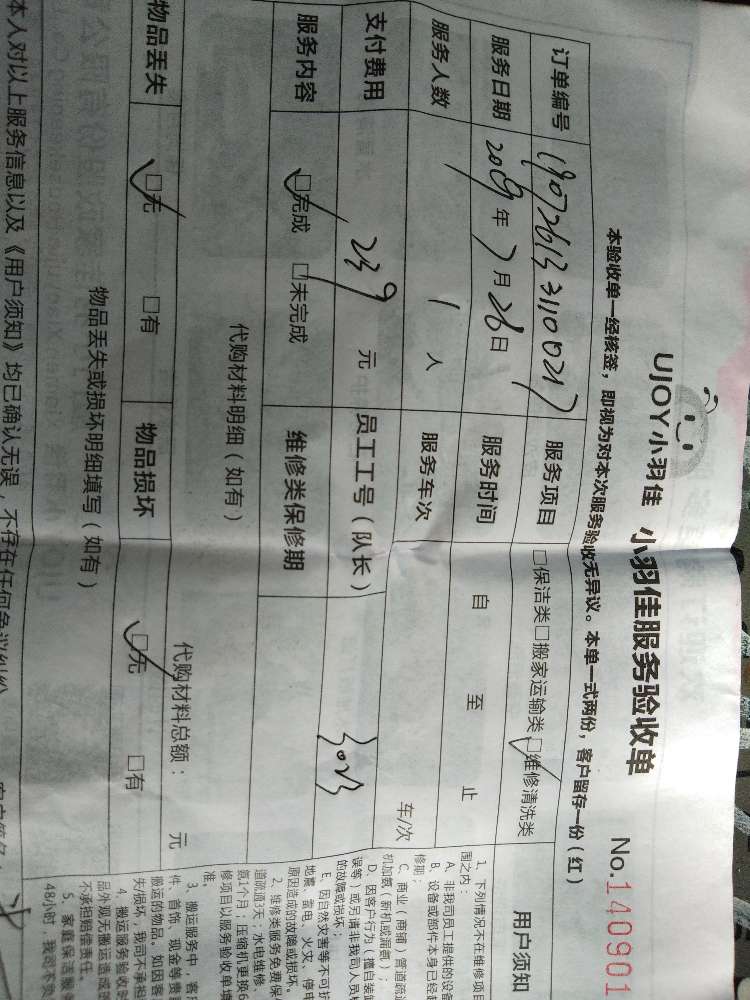 UJOY小羽佳 小羽佳服务验收单
No.140901
本验收单一经核签，即视为对本次服务验收无异议。本单一式两份，客户留存一份（红）
订单编号 1907261331100217 服务项目 □保洁类□搬家运输类□维修清洗类
服务日期 2019年7月26日 服务时间 自 至 止
服务人数 1人 服务车次 车/次
支付费用 239元 员工工号（队长） 3023
服务内容 □完成 □未完成 维修类保修期
代购材料明细（如有）
代购材料总额： 元
物品丢失 □无 □有 物品损坏 □无 □有
物品丢失或损坏明细填写（如有）
本人对以上服务信息以及《用户须知》均已确认无误，不存在任何争议纠纷
用户须知
1、下列情况不在维修项目
围之内：
A、非我司员工提供的设备
B、设备或部件本身已经超
修期；
C、商业（商铺）管道疏通
机加氨（新机或漏氨）；
D、因客户行为（擅自装卸
误等）或另请非我司人员
的故障或损坏；
E、因自然灾害等不可抗
地震、雷电、火灾、停电
原因造成的故障或损坏。
2、维修类服务免费保
道疏通1天；水电维修、
氨1个月；压缩机更换6
修项目以服务验收单填
准。
3、搬运服务中，客户
件、首饰、现金等贵重
搬运的物品。如因客
失/损坏，我司不承担
4、搬运服务验收时
品外观无搬运造成的
不承担赔偿责任。
5、家庭保洁服
48小时，我司不负